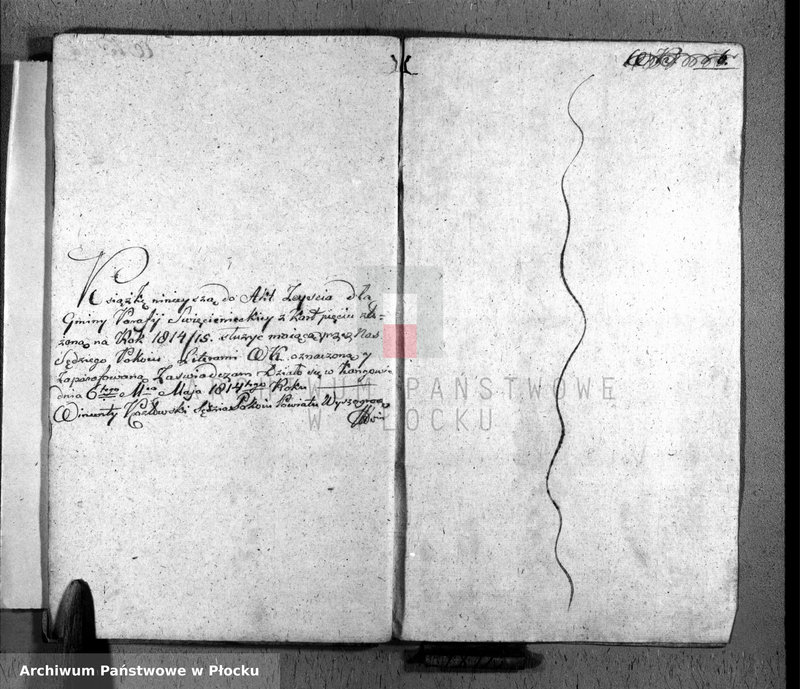 Książkę ninieyszą do Akt Zeyscia dla
Gminy Parafij Swięcienieckiey z kart pięciu zło-
żoną na Rok 1814/15. służyć maiącą przez Nas
Sędziego Pokoiu Literami WK. oznaczoną y
Zaparafowaną Zaświadczam Działo się w
dnia 6tego Mca Maja 1814tego Roku
Wincenty Kozłowski Sędzia Pokoiu Powiatu Wyszogrod
6.
ARCHIWUM PAŃSTWOWE
W PŁOCKU
Archiwum Państwowe w Płocku